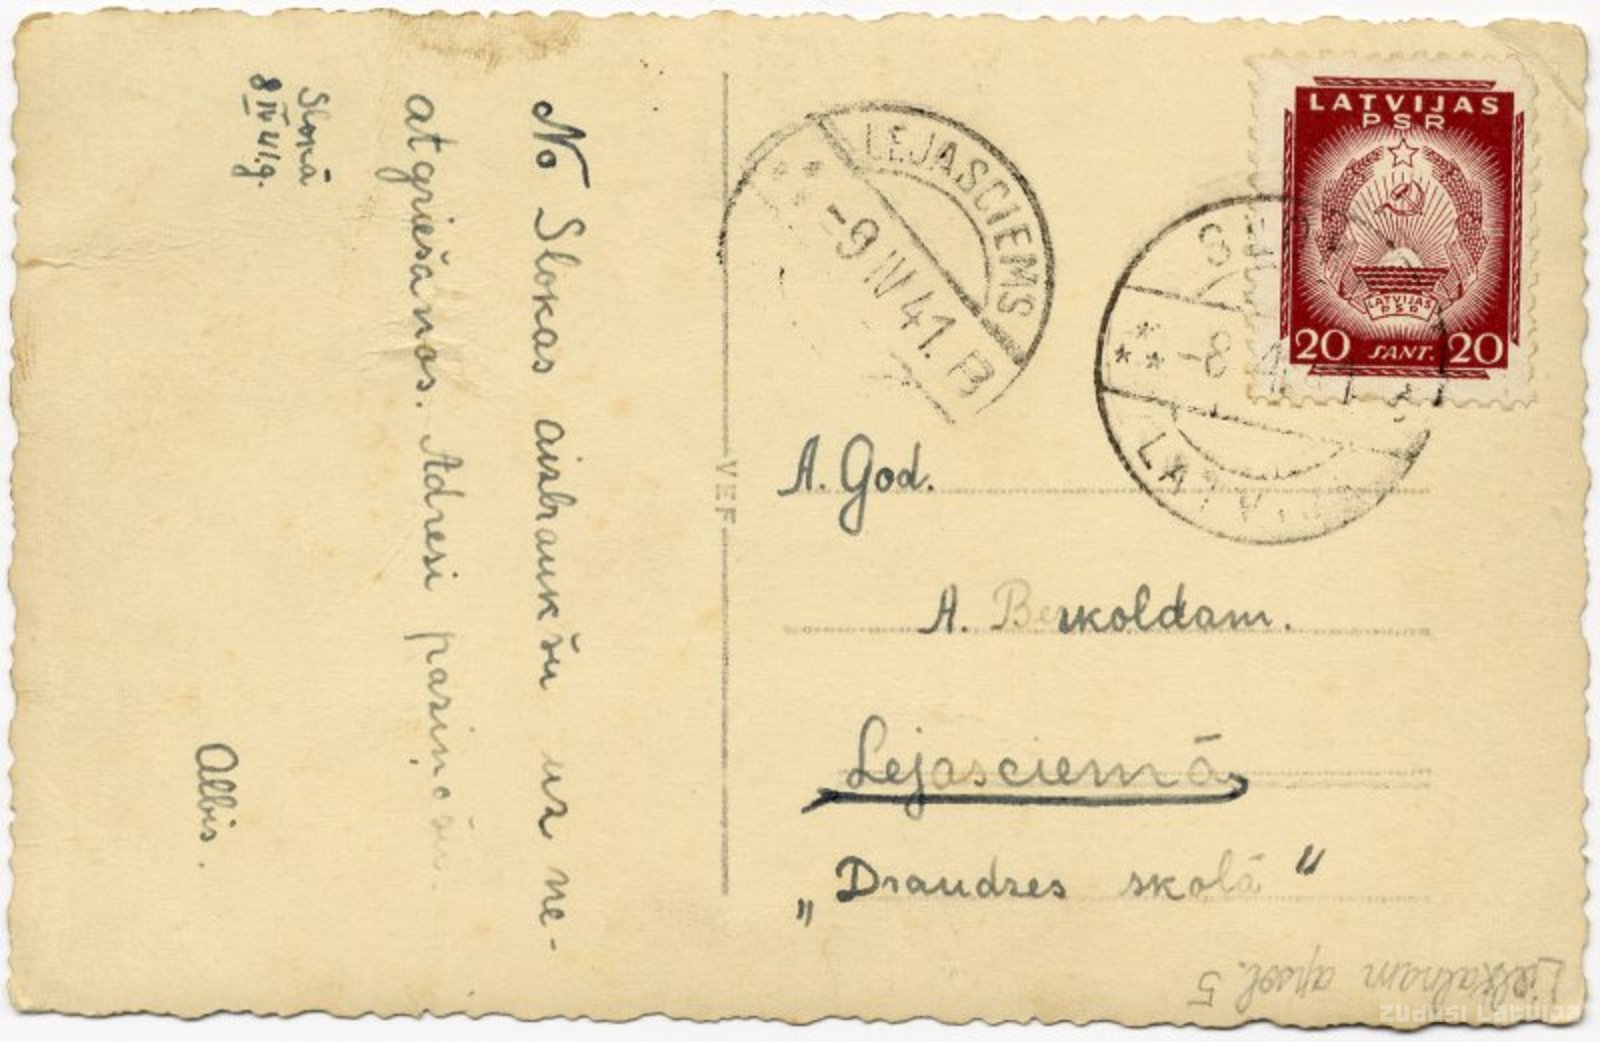 Slokā
8 IV 41.g.
No Slokas aizbraukšu uz ne-
atgriešanos. Adresi paziņošu.
Albis.
VEF
LEJASCIEMS
-9 IV 41. B
LATVIJAS
PSR
LATVIJAS
PSR
20 SANT. 20
-8
A. God.
A. Berkoldam.
Lejasciemā
„Draudzes skolā"
apsol. 5
zudusi Latvija